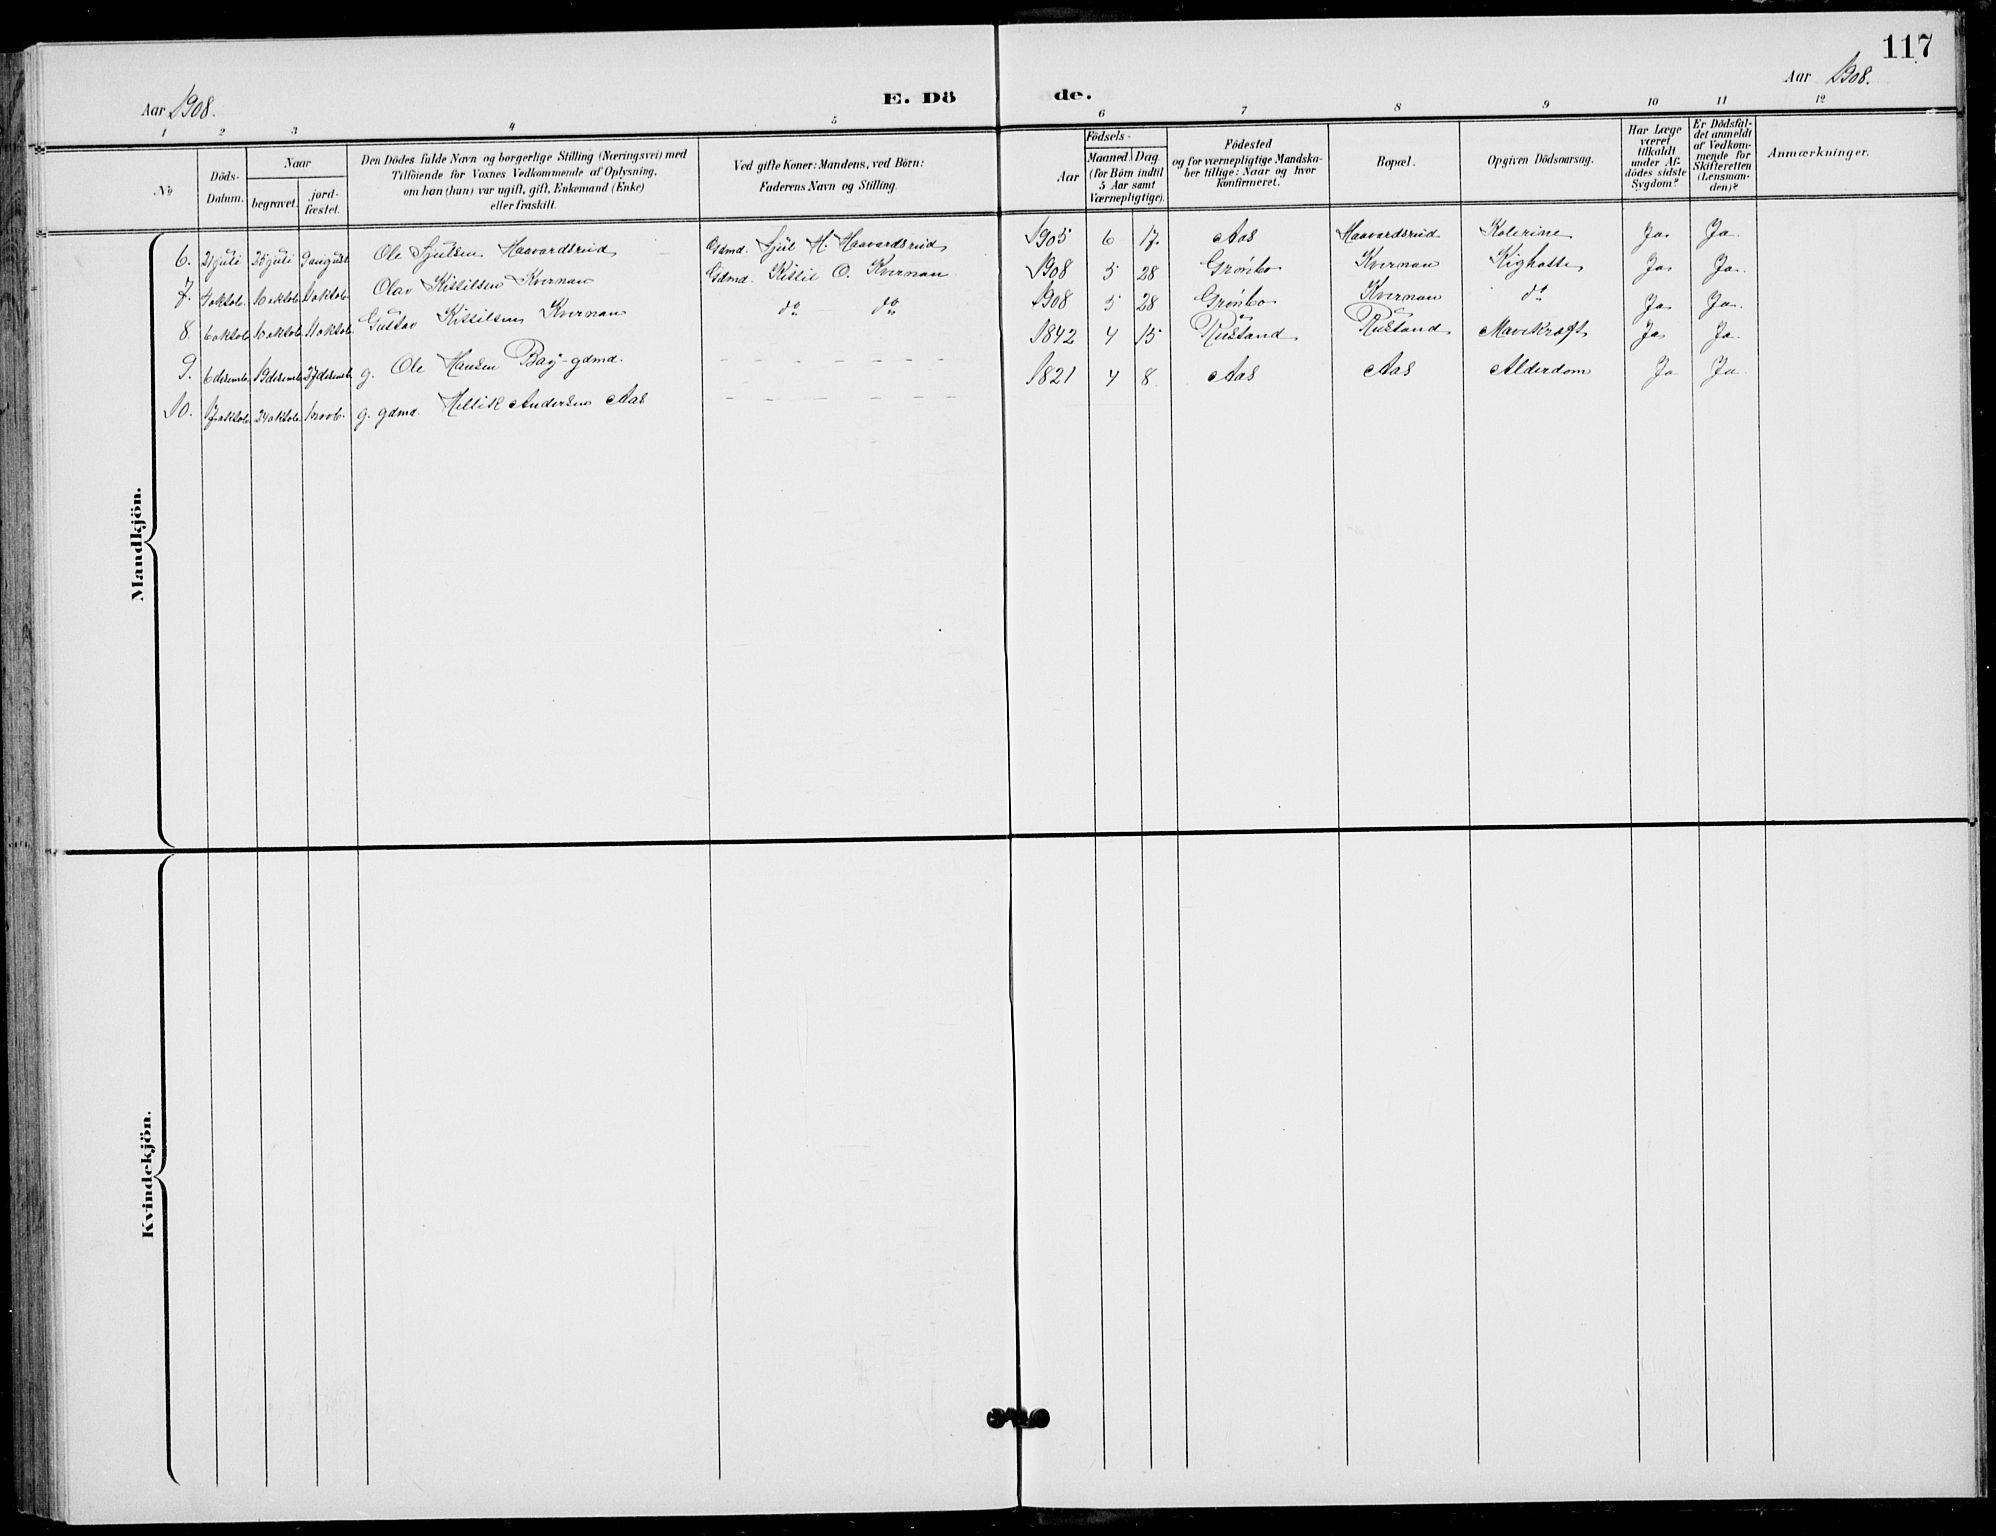 117
Aar 1908.
E. Dö de.
Aar 1908.
1 2 3 4 5 6 7 8 9 10 11 12
No
Döds-Datum.
Naar
begravet.
jord-fæstet.
Den Dödes fulde Navn og borgerlige Stilling (Næringsvei) med
Tilföiende för Voxnes Vedkommende af Oplysning,
om han (hun) var ugift, gift, Enkemand (Enke)
eller fraskilt.
Ved gifte Koner: Mandens, ved Börn:
Faderens Navn og Stilling.
Födsels-
Aar
Maaned. Dag.
(for Börn indtil
5 Aar samt
Værnepligtige).
Födested
og for værnepligtige Mandska-
ber tillige: Naar og hvor
konfirmeret.
Bopæl.
Opgiven Dödsaarsag.
Har Læge
været
tilkaldt
under Af-
dödes sidste
Sygdom?
Er Dödsfal-
det anmeldt
af Vedkom-
mende for
Skifteretten
(Lensman-
den)?
Anmærkninger.
Mandkjön.
6. 21 juli 25 juli 9 august Ole Sjulsen Haavardsrud Gdmd. Sjul H. Haavardsrud 1905 6 17. Aas Haavardsrud Kolerine Ja Ja.
7. 4 oktob. 10 oktob. 11 oktob. Olav Kittilsen Kvernan Gdmd. Kittil O. Kvernan 1908 5 28 Grönbo Kvernan Kighoste Ja Ja.
8. 6 oktob. 10 oktob. 11 oktob. Gustav Kittilsen Kvernan do do 1908 5 28 Grönbo Kvernan do Ja Ja.
9. 6 desemb. 19 desemb. 27 desemb. g. Ole Hansen Baӱ - gdmd. – – – – – – – 1842 4 15 Rustand Rustand Mavekræft Ja Ja.
10. 17 oktob. 24 oktob. 1 novb. g. gdmd. Hellik Andersen Aas – – – – – – – 1821 4 8. Aas Aas Alderdom Ja Ja
Kvindekjön.